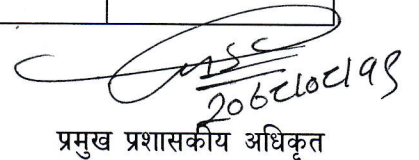 २०७८।०८।१९
प्रमुख प्रशासकीय अधिकृत